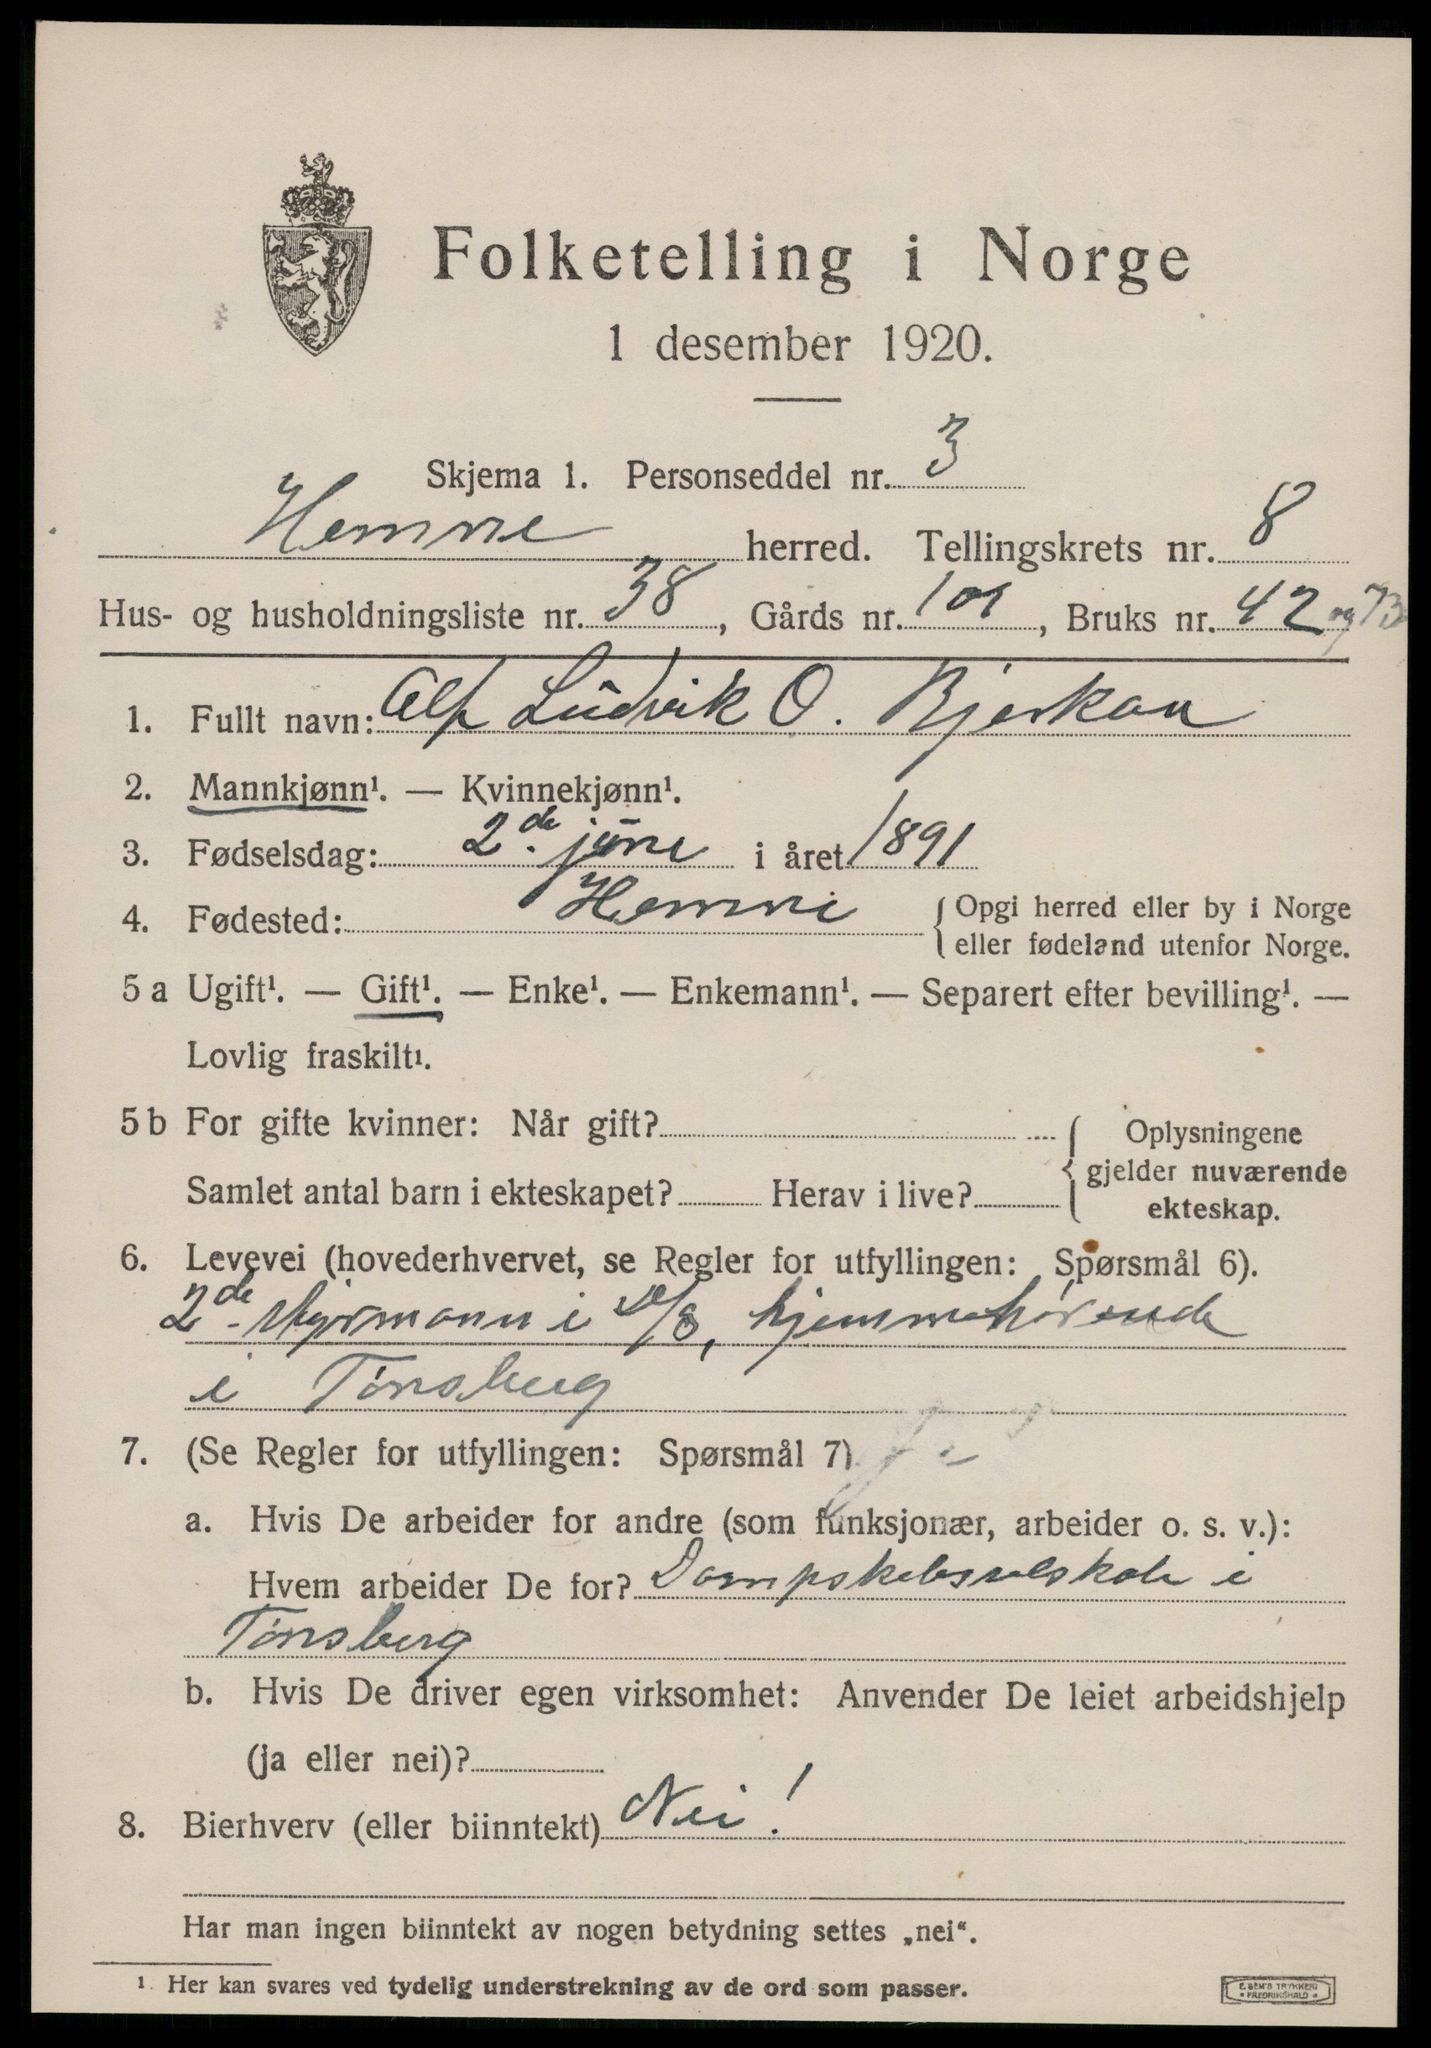 Folketelling i Norge
1 desember 1920.
Skjema 1. Personseddel nr. 3
Hemne herred. Tellingskrets nr. 8
Hus- og husholdningsliste nr. 38, Gårds nr. 101, Bruks nr. 42 og 73
1. Fullt navn: Alf Ludvik O. Bjerkan
2. Mannkjønn¹. — Kvinnekjønn¹.
3. Fødselsdag: 2de juni i året 1891
4. Fødested: Hemne { Opgi herred eller by i Norge
eller fødeland utenfor Norge.
5 a Ugift¹. — Gift¹. — Enke¹. — Enkemann¹. — Separert efter bevilling¹. —
Lovlig fraskilt¹.
5 b For gifte kvinner: Når gift? { Oplysningene
gjelder nuværende
Samlet antal barn i ekteskapet? Herav i live? ekteskap.
6. Levevei (hovederhvervet, se Regler for utfyllingen: Spørsmål 6).
2de Styrmann i D/S, hjemmehørende
i Tønsberg
7. (Se Regler for utfyllingen: Spørsmål 7)
a. Hvis De arbeider for andre (som funksjonær, arbeider o. s. v.):
Hvem arbeider De for? Dampskibsselskab i
Tønsberg
b. Hvis De driver egen virksomhet: Anvender De leiet arbeidshjelp
(ja eller nei)?
8. Bierhverv (eller biinntekt) Nei!
Har man ingen biinntekt av nogen betydning settes „nei“.
¹ Her kan svares ved tydelig understrekning av de ord som passer.
E. SEM'S TRYKKERI
* FREDRIKSHALD *